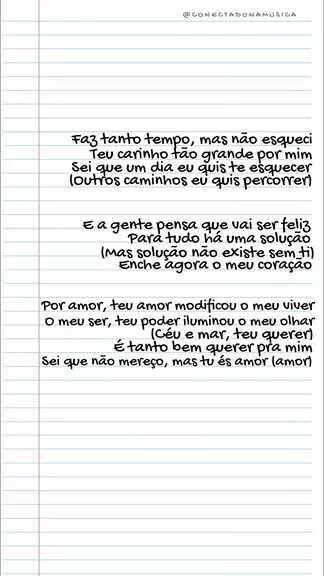 @CONECTADONAMUSICA
Faz tanto tempo, mas não esqueci
Teu carinho tão grande por mim
Sei que um dia eu quis te esquecer
(Outros caminhos eu quis percorrer)
E a gente pensa que vai ser feliz
Para tudo há uma solução
(Mas solução não existe sem ti)
Enche agora o meu coração
Por amor, teu amor modificou o meu viver
O meu ser, teu poder iluminou o meu olhar
(Céu e mar, teu querer)
É tanto bem querer pra mim
Sei que não mereço, mas tu és amor (amor)